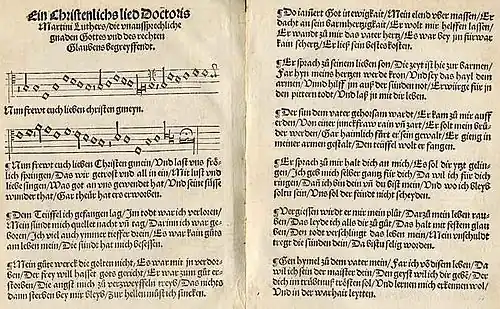 Ein Christenlichs lied Doctoris
Martini Luthers/die unaussprechliche
gnaden Gottes und des rechten
Glaubens begreyffendt.
Nun frewt euch lieben christen gmeyn.
¶Nun frewt euch lieben Christen gmein/Und laßt uns frö-
lich springen/Das wir getrost und all in ein/Mit lust und
liebe singen/Was got an uns gewendet hat/Und sein süsse
wunder that/Gar theür hat ers erworben.
¶Dem Teüffel ich gefangen lag/Im todt war ich verloren/
Mein sünd mich quellet nacht uñ tag/Dar inn ich war ge-
boren/Ich viel auch ymmer tieffer drein/Es war kain gůts
am leben mein/Die sünd hat mich besessen.
¶Mein gůte werck die golten nicht/Es war mit jn verdor-
ben/Der frey will hasset gots gericht/Er war zum gůt er-
storben/Die angst mich zu verzweyfeln treyb/Das nichts
dann sterben bey mir bleyb/Zur hellen můst ich sincken.
¶Do jamert Got in ewigkait/Mein elend uber massen/Er
dacht an sein barmhertzigkait/Er wolt mir helffen lassen/
Er wandt zů mir das vater hertz/Es war bey jm fürwar
kain schertz/Er ließ sein bestes kosten.
¶Er sprach zů seinem lieben son/Die zeyt ist hie zur barmen/
Far hyn meins hertzen werde kron/Und sey das hayl dem
armen/Unnd hilff jm auß der sünden not/Erwürg für jn
den pittern todt/Und laß jn mit dir leben.
¶Der sun dem vater gehorsam wardt/Er kam zů mir auff
erden/Von einer junckfraw rain uñ zart/Er solt mein brů-
der werden/Gar haimlich fürt er sein gewalt/Er gieng in
meiner armen gestalt/Den teüffel wolt er fangen.
¶Er sprach zů mir halt dich an mich/Es sol dir yetzt gelin-
gen/Ich geb mich selber gantz für dich/Da wil ich für dich
ringen/Dañ ich bin dein uñ du bist mein/Und wo ich bleyb
soltu sein/Uns sol der feindt nicht scheyden.
¶Vergiessen wirdt er mir mein plůt/Dar zů mein leben rau-
ben/Das leyd ich alls dir zů gůt/Das halt mit festem glau-
ben/Den todt verschlingt das leben mein/Mein unschuldt
tregt die sünden dein/Da bistu selig worden.
¶Gen hymel zů dem vater mein/Far ich vō disem leben/Da
wil ich sein der maister dein/Den geyst wil ich dir gebē/Der
dich in trübtnuß trösten sol/Und lernen mich erkennen wol/
Und in der warhait leytten.